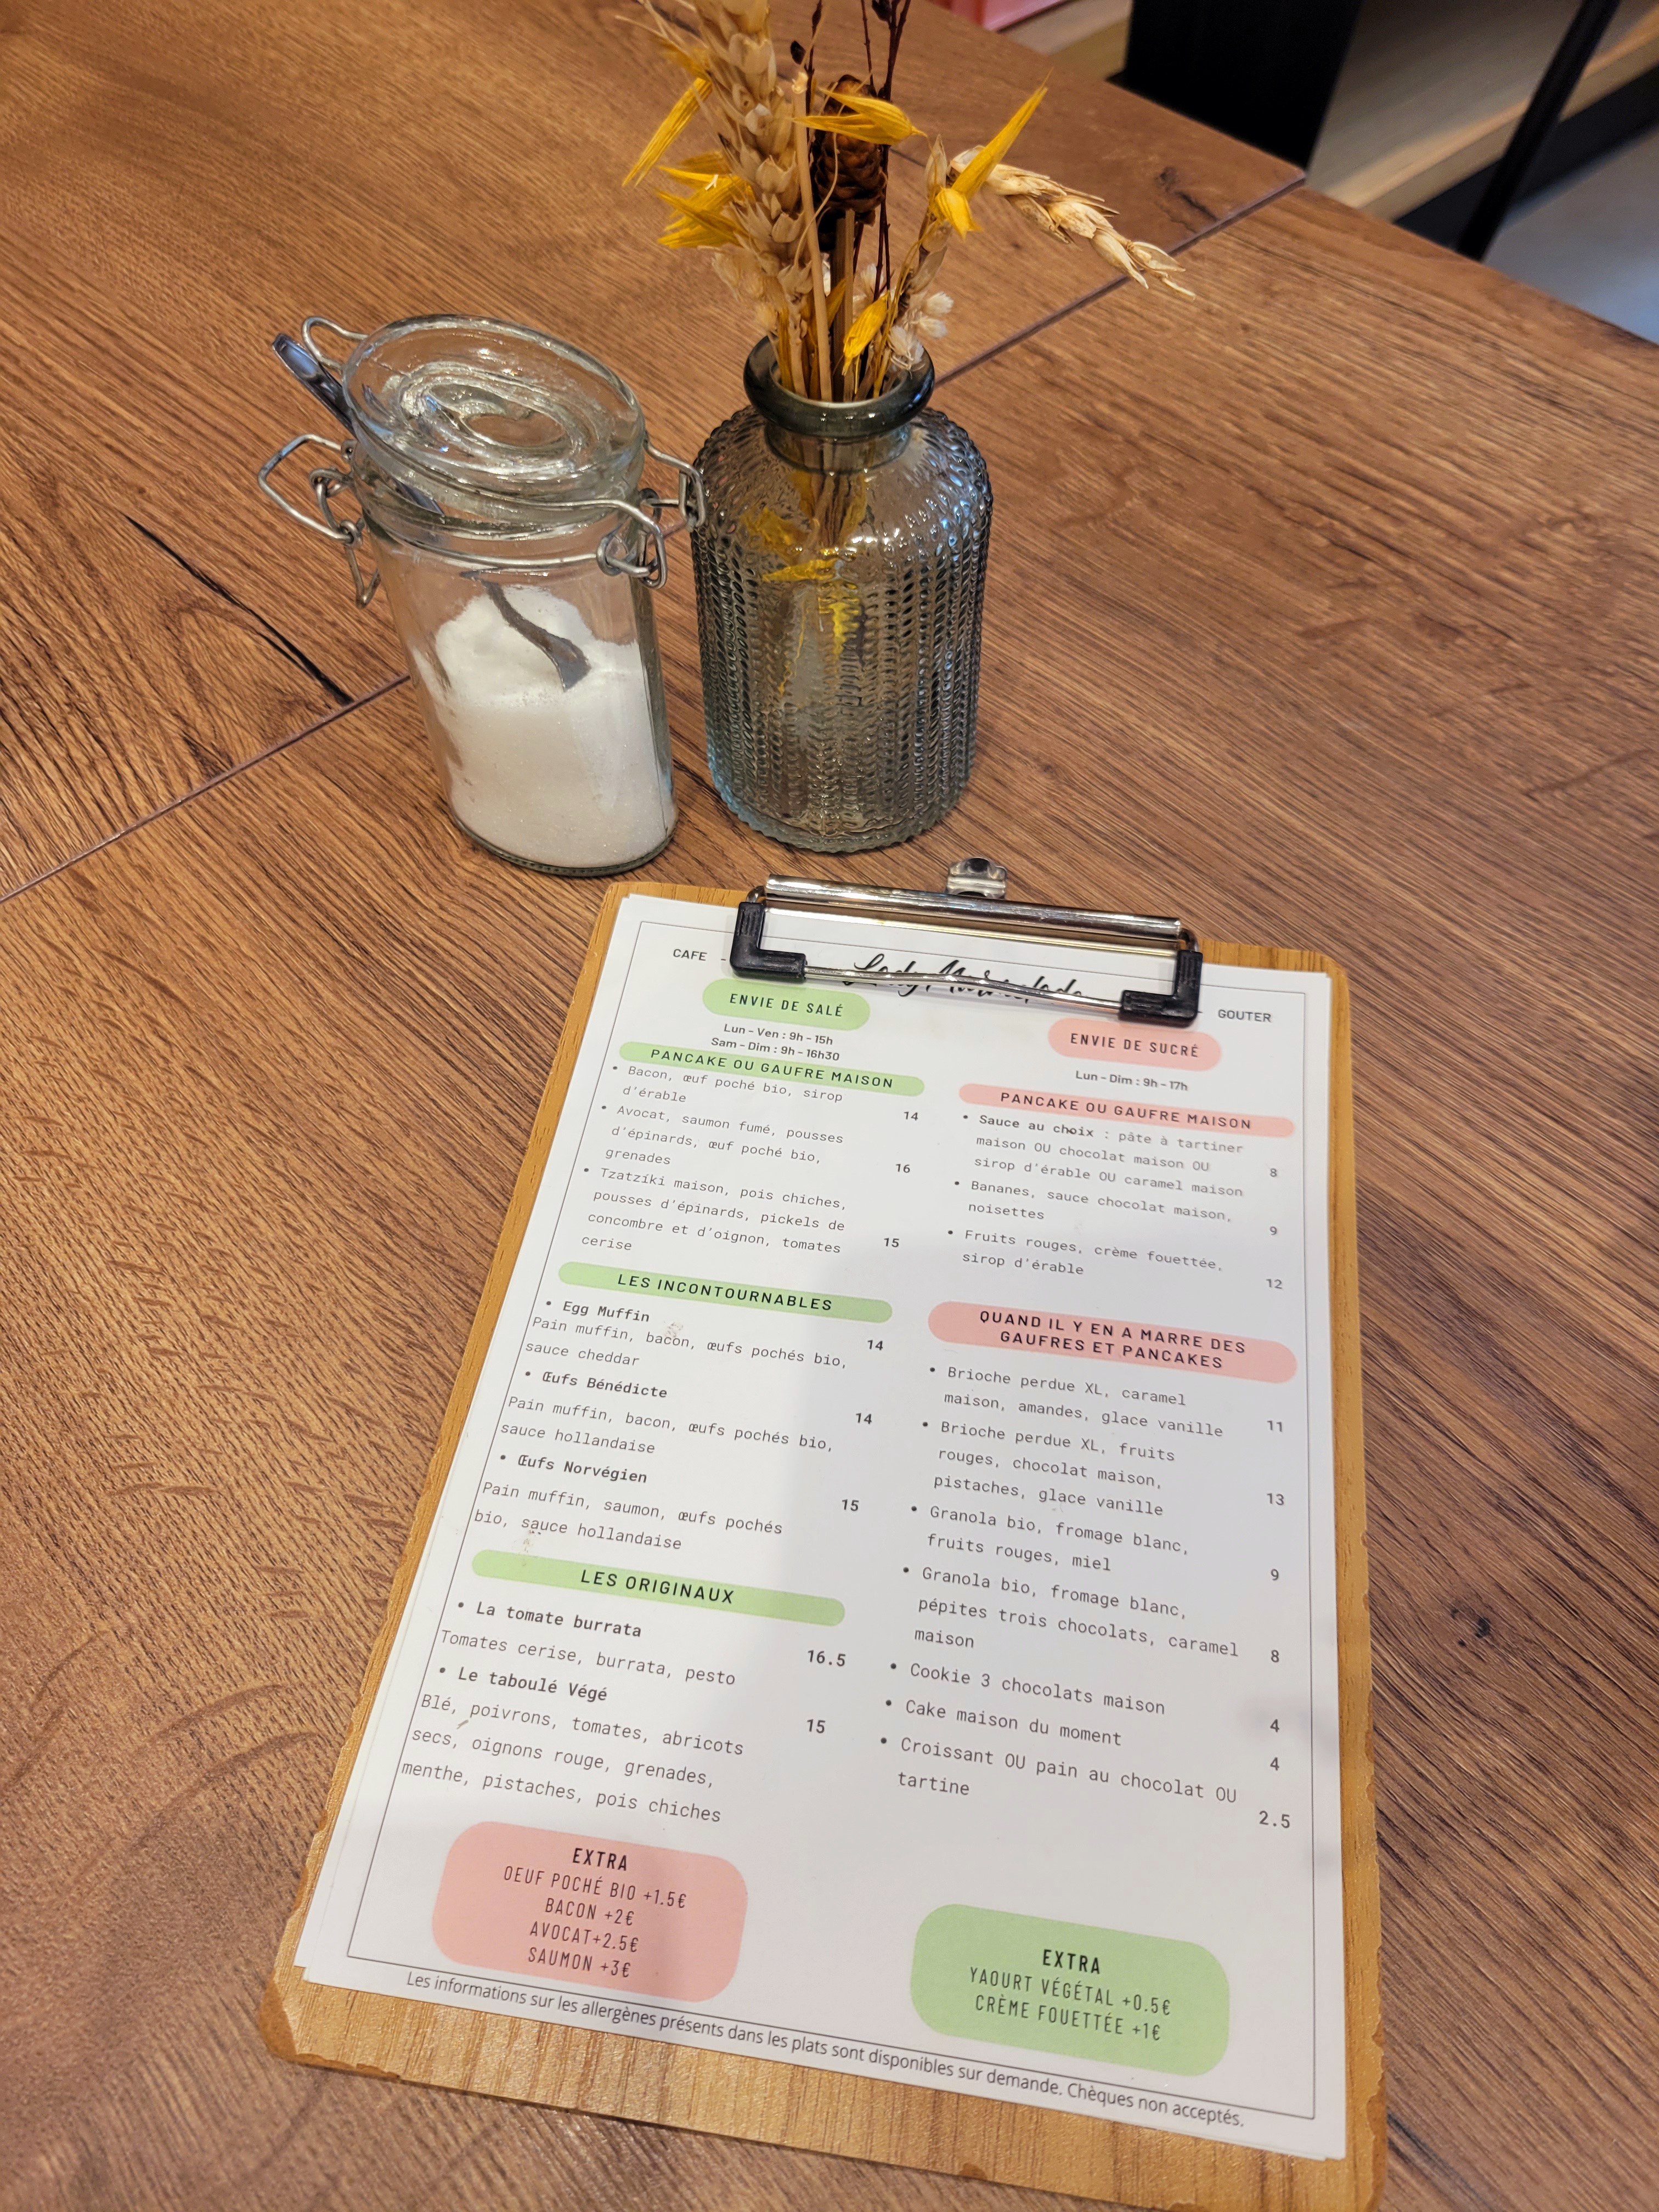 CAFE -
- GOUTER
ENVIE DE SALÉ
Lun - Ven : 9h - 15h
Sam - Dim : 9h - 16h30
PANCAKE OU GAUFRE MAISON
• Bacon, œuf poché bio, sirop
d'érable 14
• Avocat, saumon fumé, pousses
d'épinards, œuf poché bio,
grenades 16
• Tzatzíki maison, pois chiches,
pousses d'épinards, pickels de
concombre et d'oignon, tomates 15
cerise
LES INCONTOURNABLES
• Egg Muffin 14
Pain muffin, bacon, œufs pochés bio,
sauce cheddar
• Œufs Bénédicte 14
Pain muffin, bacon, œufs pochés bio,
sauce hollandaise
• Œufs Norvégien 15
Pain muffin, saumon, œufs pochés
bio, sauce hollandaise
LES ORIGINAUX
• La tomate burrata 16.5
Tomates cerise, burrata, pesto
• Le taboulé Végé 15
Blé, poivrons, tomates, abricots
secs, oignons rouge, grenades,
menthe, pistaches, pois chiches
EXTRA
OEUF POCHÉ BIO +1.5€
BACON +2€
AVOCAT+2.5€
SAUMON +3€
ENVIE DE SUCRÉ
Lun - Dim : 9h - 17h
PANCAKE OU GAUFRE MAISON
• Sauce au choix : pâte à tartiner
maison OU chocolat maison OU
sirop d'érable OU caramel maison 8
• Bananes, sauce chocolat maison,
noisettes 9
• Fruits rouges, crème fouettée,
sirop d'érable 12
QUAND IL Y EN A MARRE DES
GAUFRES ET PANCAKES
• Brioche perdue XL, caramel
maison, amandes, glace vanille 11
• Brioche perdue XL, fruits
rouges, chocolat maison,
pistaches, glace vanille 13
• Granola bio, fromage blanc,
fruits rouges, miel 9
• Granola bio, fromage blanc,
pépites trois chocolats, caramel 8
maison
• Cookie 3 chocolats maison 4
• Cake maison du moment 4
• Croissant OU pain au chocolat OU
tartine 2.5
EXTRA
YAOURT VÉGÉTAL +0.5€
CRÈME FOUETTÉE +1€
Les informations sur les allergènes présents dans les plats sont disponibles sur demande. Chèques non acceptés.